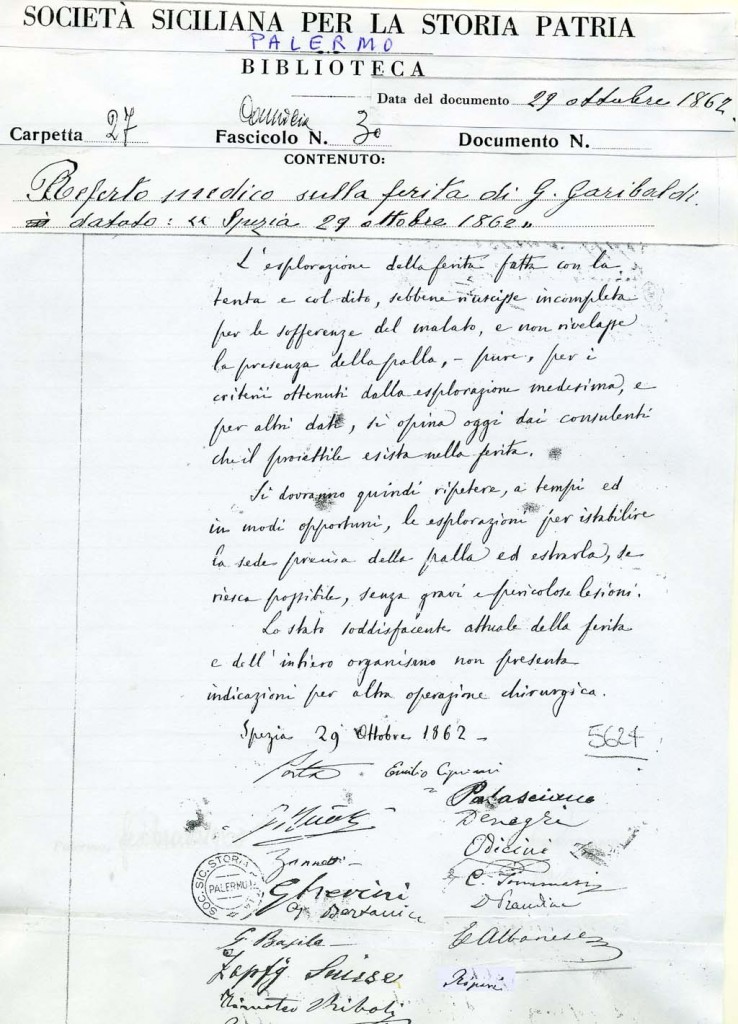 SOCIETÀ SICILIANA PER LA STORIA PATRIA
PALERMO
BIBLIOTECA
Data del documento 29 ottobre 1862.
Carpetta 27 Fascicolo N. 30 Documento N.
CONTENUTO:
Referto medico sulla ferita di G. Garibaldi.
datato: "Spezia 29 ottobre 1862"
L'esplorazione della ferita fatta con la
tenta e col dito, sebbene riuscisse incompleta
per le sofferenze del malato, e non rivelasse
la presenza della palla, – pure, per i
criterii ottenuti dalla esplorazione medesima, e
per altri dati, si opina oggi dai consulenti
che il proiettile esista nella ferita.
Si dovranno quindi ripetere, a tempi ed
in modi opportuni, le esplorazioni per istabilire
la sede precisa della palla ed estrarla, se
riesca possibile, senza gravi e pericolose lesioni.
Lo stato soddisfacente attuale della ferita
e dell'intiero organismo non presenta
indicazioni per altra operazione chirurgica.
Spezia 29 Ottobre 1862 –
5624
Porta Emilio Cipriani
Palasciano
Denegri
Zannetti
Odicini
SOC. SIC. STORIA
PALERMO
Gherini
C. Tommasi
Bertani
G. Basile
E Albanese
Zopfy Suisse
Ripari
Timoteo Riboli